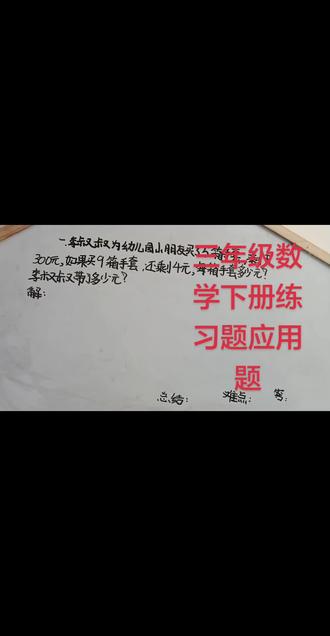 一.李叔叔为幼儿园小朋友买 箱手套,
300元,如果买9箱手套,还剩4元,每箱手套多少元?
李叔叔带了多少元?
解:
三年级数
学下册练
习题应用
题
总结: 难点: